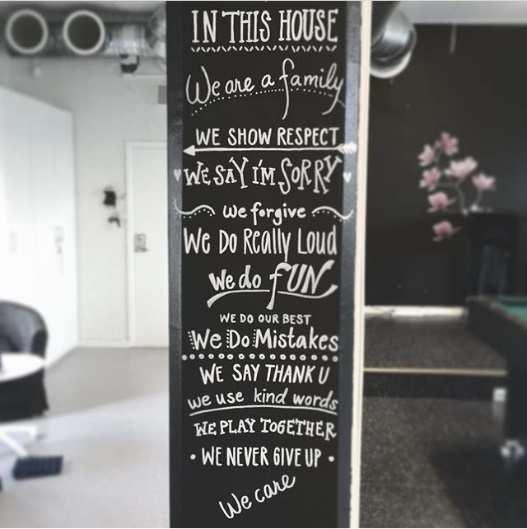 IN THIS HOUSE
We are a family
WE SHOW RESPECT
WE SAY I'M SORRY
we forgive
We Do Really Loud
We do FUN
WE DO OUR BEST
We Do Mistakes
WE SAY THANK U
we use kind words
WE PLAY TOGETHER
• WE NEVER GIVE UP •
We care